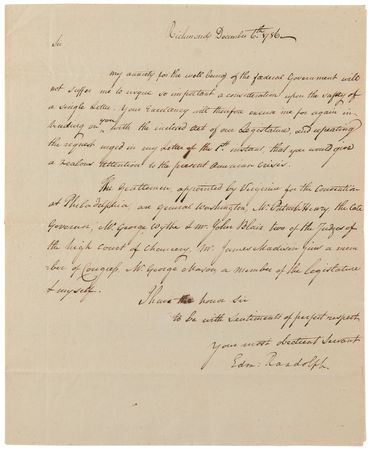 Richmond December 6th 1786.
Sir
my anxiety for the well being of the fœderal Government will
not suffer me to risque so important a consideration upon the safety of
a single Letter. Your Excellency will therefore excuse me for again in-
truding on you with the enclosed act of our Legislature, and repeating
the request urged in my Letter of the 1st instant, that you would give
a zealous attention to the present American Crisis.
The Gentlemen appointed by Virginia for the Convention
at Philadelphia, are General Washington, Mr. Patrick Henry, the late
Governor, Mr. George Wythe & Mr. John Blair two of the Judges of
the high Court of Chancery, Mr. James Madison Junr a mem-
ber of Congress, Mr. George Mason a member of the Legislature
& myself.
I have the honor Sir
to be with sentiments of perfect respect
Your most obedient servant
Edm: Randolph